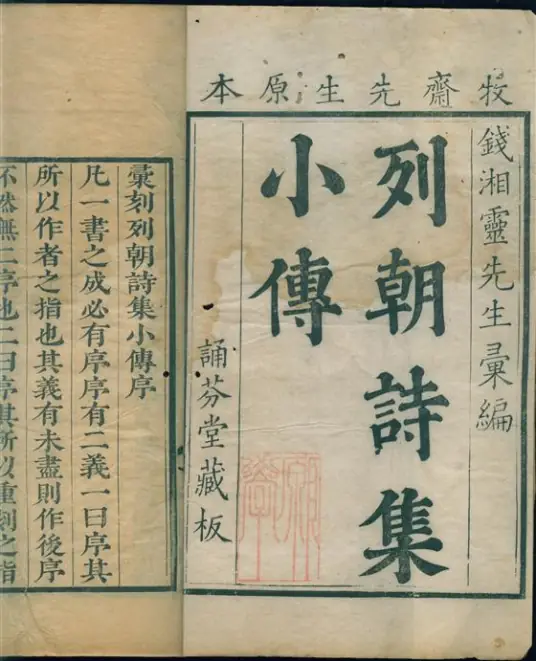 牧齋先生原本
錢湘靈先生彚編
列朝詩集
小傳
誦芬堂藏板
彙刻列朝詩集小傳序
凡一書之成必有序序有二義一曰序其
所以作者之指也其義有未盡則作後序
不然無二序也二曰序其所以重刻之指